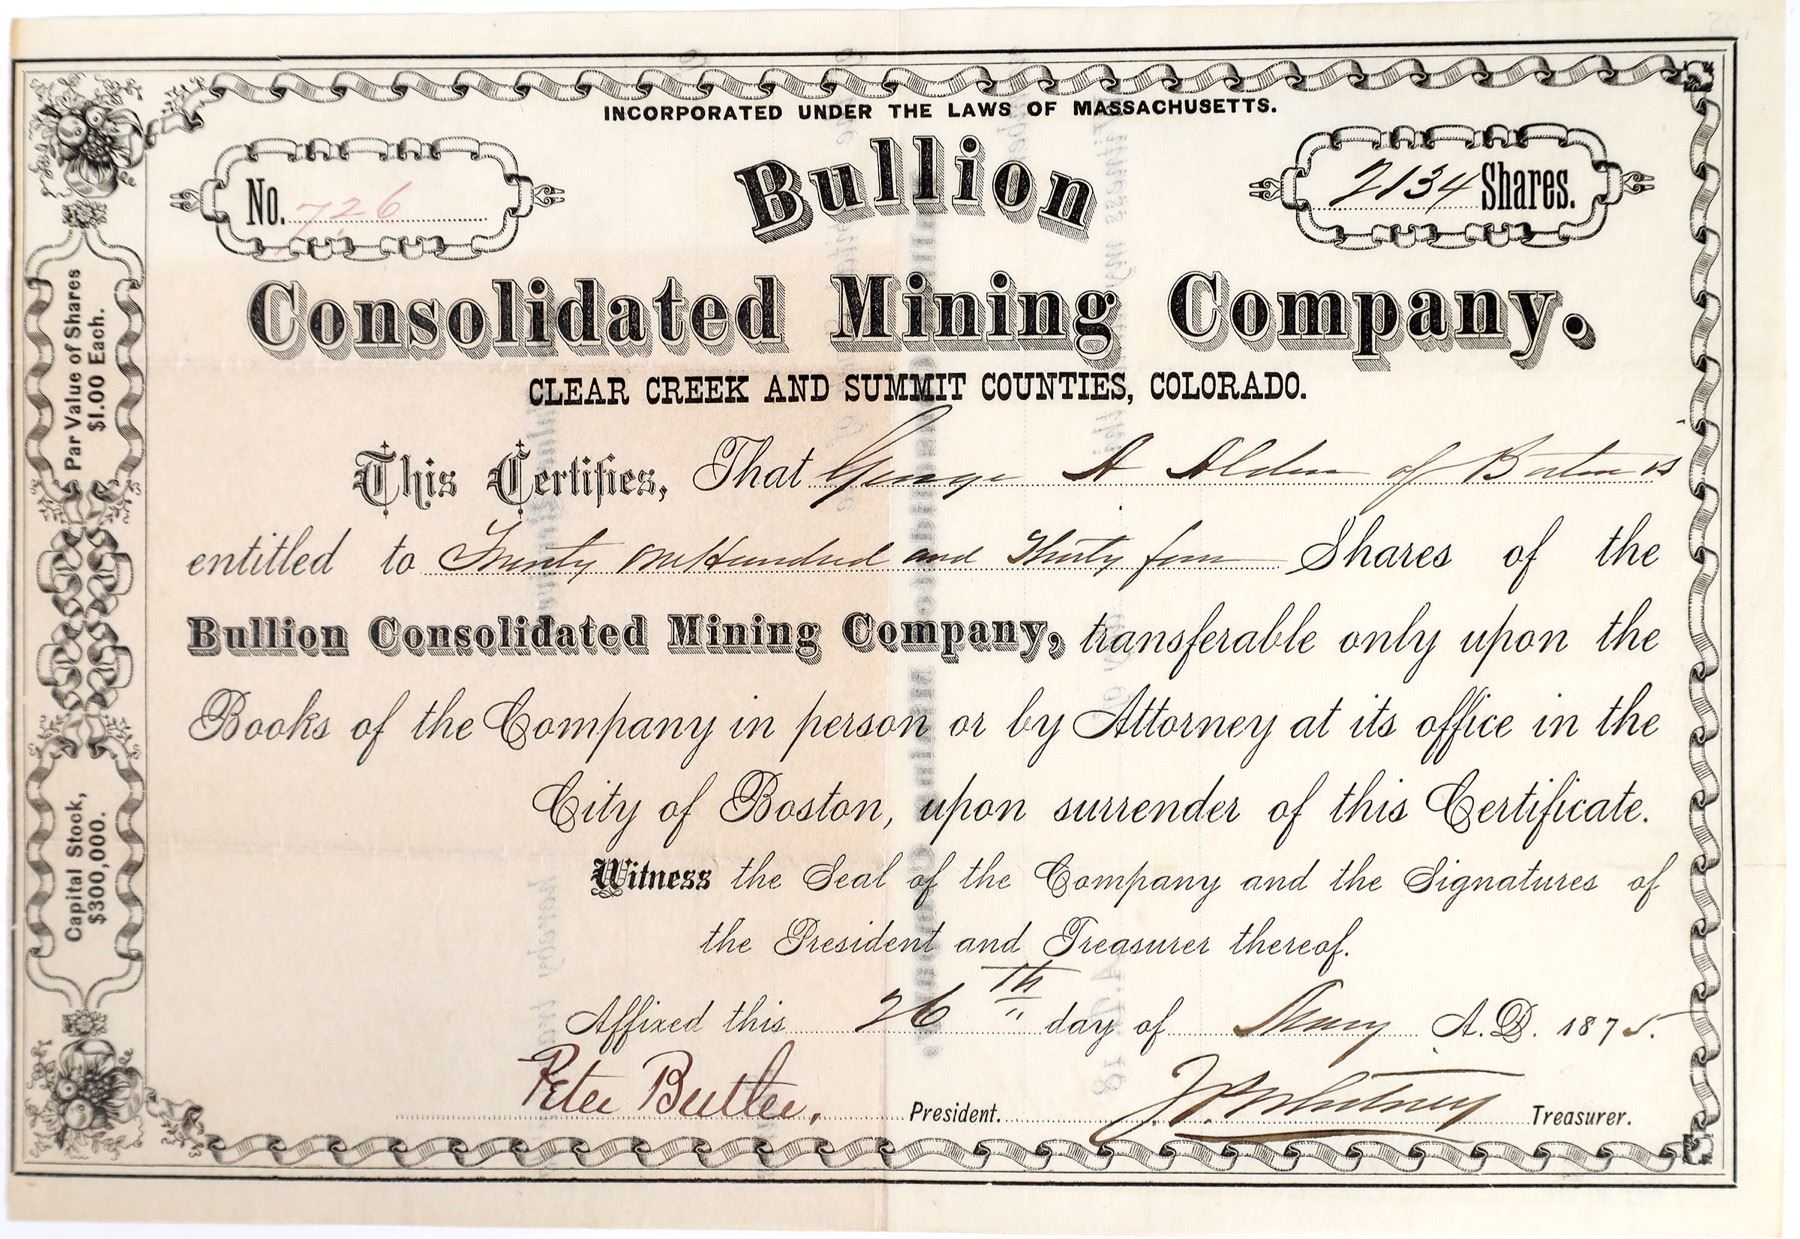 INCORPORATED UNDER THE LAWS OF MASSACHUSETTS.
No. 726
2134 Shares.
Bullion
Consolidated Mining Company.
CLEAR CREEK AND SUMMIT COUNTIES, COLORADO.
Par Value of Shares
$1.00 Each.
Capital Stock,
$300,000.
This Certifies, That George A Alden of Boston is
entitled to Twenty one Hundred and Thirty four Shares of the
Bullion Consolidated Mining Company, transferable only upon the
Books of the Company in person or by Attorney at its office in the
City of Boston, upon surrender of this Certificate.
Witness the Seal of the Company and the Signatures of
the President and Treasurer thereof.
Affixed this 26th day of May A.D. 1875.
Peter Butler, President. J. P. Whitney Treasurer.